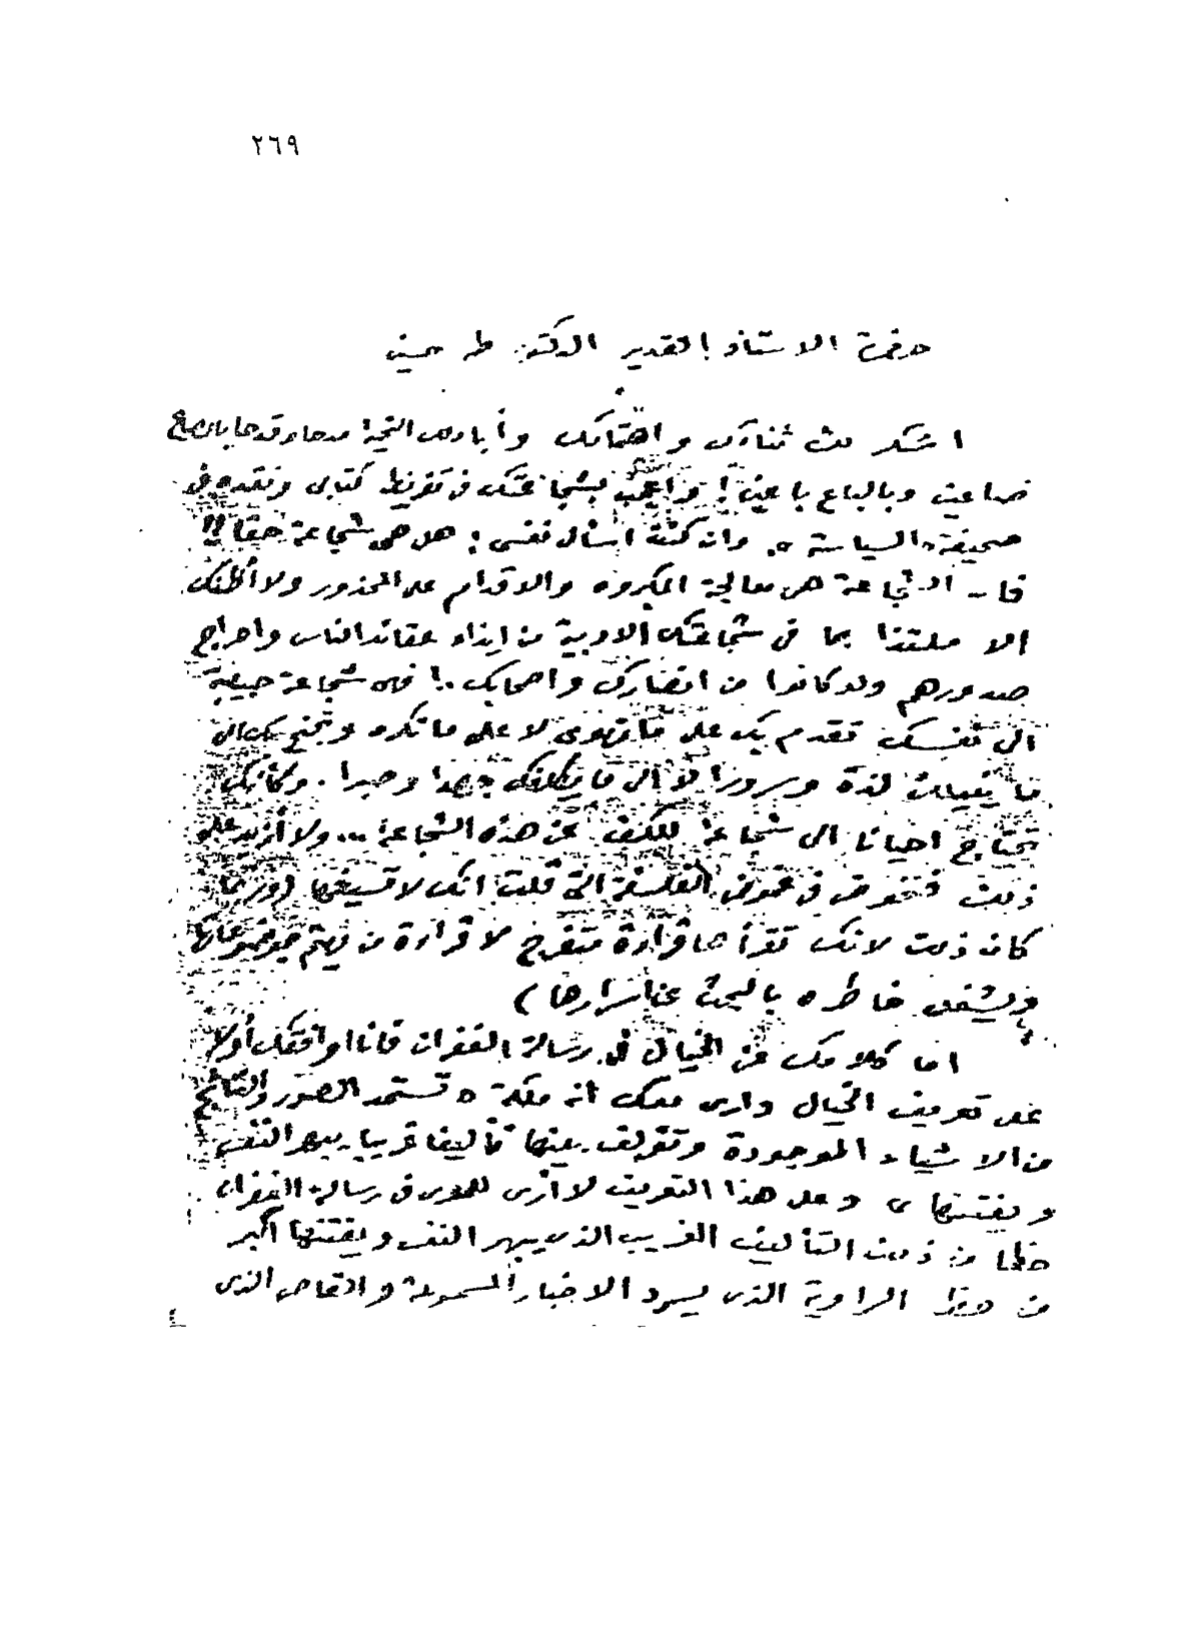 ٢٦٩
حضرة الاستاذ القدير الدكتور طه حسين
اشكر لك ثناءك واهتمامك وأبادلك التحية مدحا وقدحا بالصاع
صاعين وبالباع باعين! واعجب بشجاعتك في تقريظ كتابي ونقده في
صحيفة «السياسة». وان كنت اسأل نفسي: هل هي شجاعة حقا!!
فان الشجاعة هي معالجة المكروه والاقدام على المحذور ولا أظنك
الا ملتذا بما في شجاعتك الادبية من إيذاء عقائد الناس واحراج
صدورهم ولو كانوا من انصارك واصحابك.! فهي شجاعة حبيبة
الى نفسك تقدم بك على ما تهوى لا على ما تكره وتجنح بك الى
ما ينيلك لذة وسرورا لا الى ما يكلفك جهدا وصبرا. وكأنك
تحتاج احيانا الى شجاعة للكف عن هذه الشجاعة ... ولا أزيد على
ذلك فنخوض في غموض الفلسفة التي قلت انك لا تسيغها (وربما
كان ذلك لانك تقرأها قراءة متفرج لا قراءة من يهتم بموضوعاتها
ويشغل خاطره بالبحث عن اسرارها)
اما كلامك عن الخيال في رسالة الغفران فانا اوافقك أولا
على تعريف الخيال وارى معك انه ملكة «تستمد الصور والنتائج
من الاشياء الموجودة وتؤلف بينها تأليفا غريبا يبهر النفس
ويفتنها» وعلى هذا التعريف لا أرى للمعري في رسالة الغفران
حظا من ذلك التأليف الغريب الذي يبهر النفس ويفتنها اكبر
من حظ الراوية الذي يسرد الاخبار المسموعة والقصاص الذي